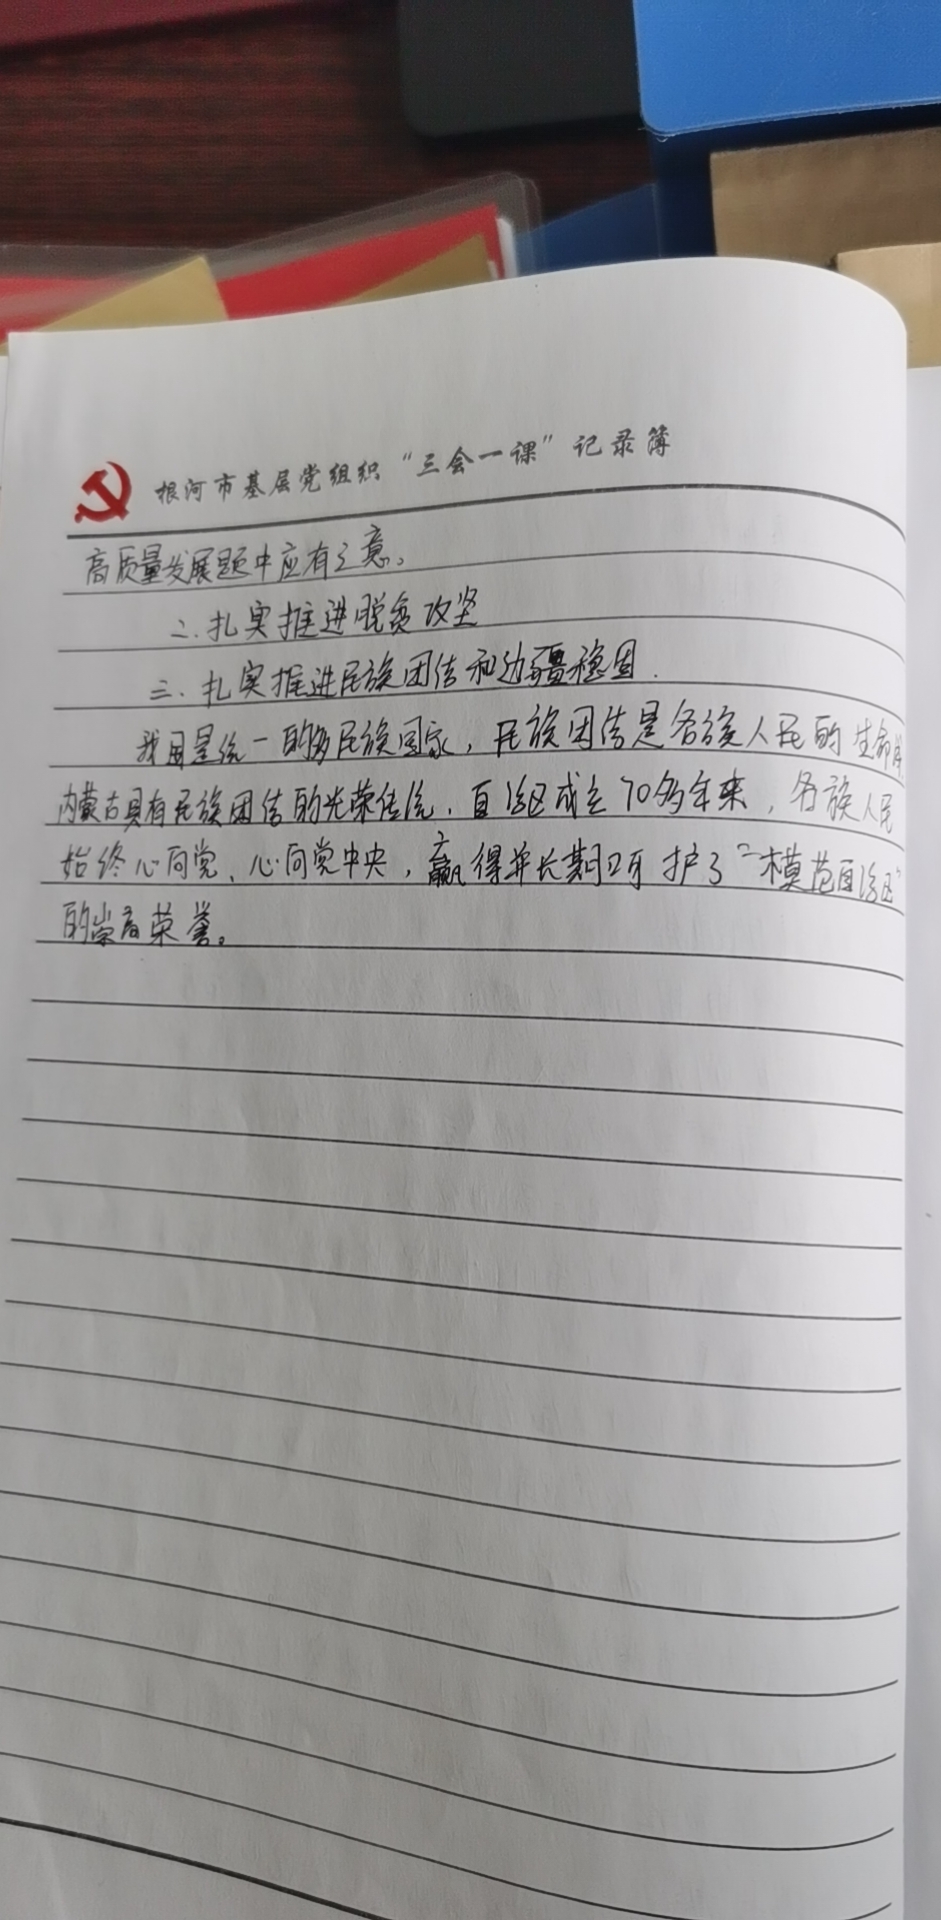 根河市基层党组织“三会一课”记录簿
高质量发展题中应有之意。
二.扎实推进脱贫攻坚
三.扎实推进民族团结和边疆稳固.
我国是统一的多民族国家,民族团结是各族人民的生命
内蒙古具有民族团结的光荣传统.自治区成立70多年来,各族人民
始终心向党、心向党中央,赢得并长期呵护了“模范自治区”
的崇高荣誉。